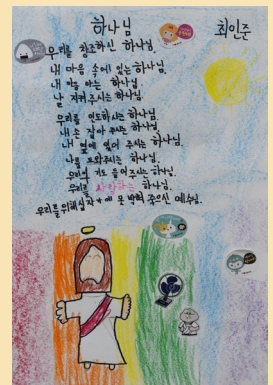 하나님 최인준
우리를 창조하신 하나님.
내 마음 속에 있는 하나님.
내 맘 아는 하나님.
날 지켜 주시는 하나님.
우리를 인도하시는 하나님.
내 손 잡아 주시는 하나님.
내 옆에 있어 주시는 하나님.
나를 도와주시는 하나님.
우리의 기도 들어 주시는 하나님.
우리를 사랑하는 하나님.
우리를 위해 십자가에 못 박혀 죽으신 예수님.